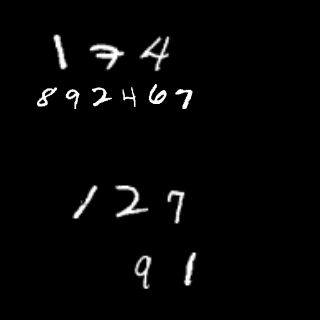 1 7 4
892467
1 2 7
9 1